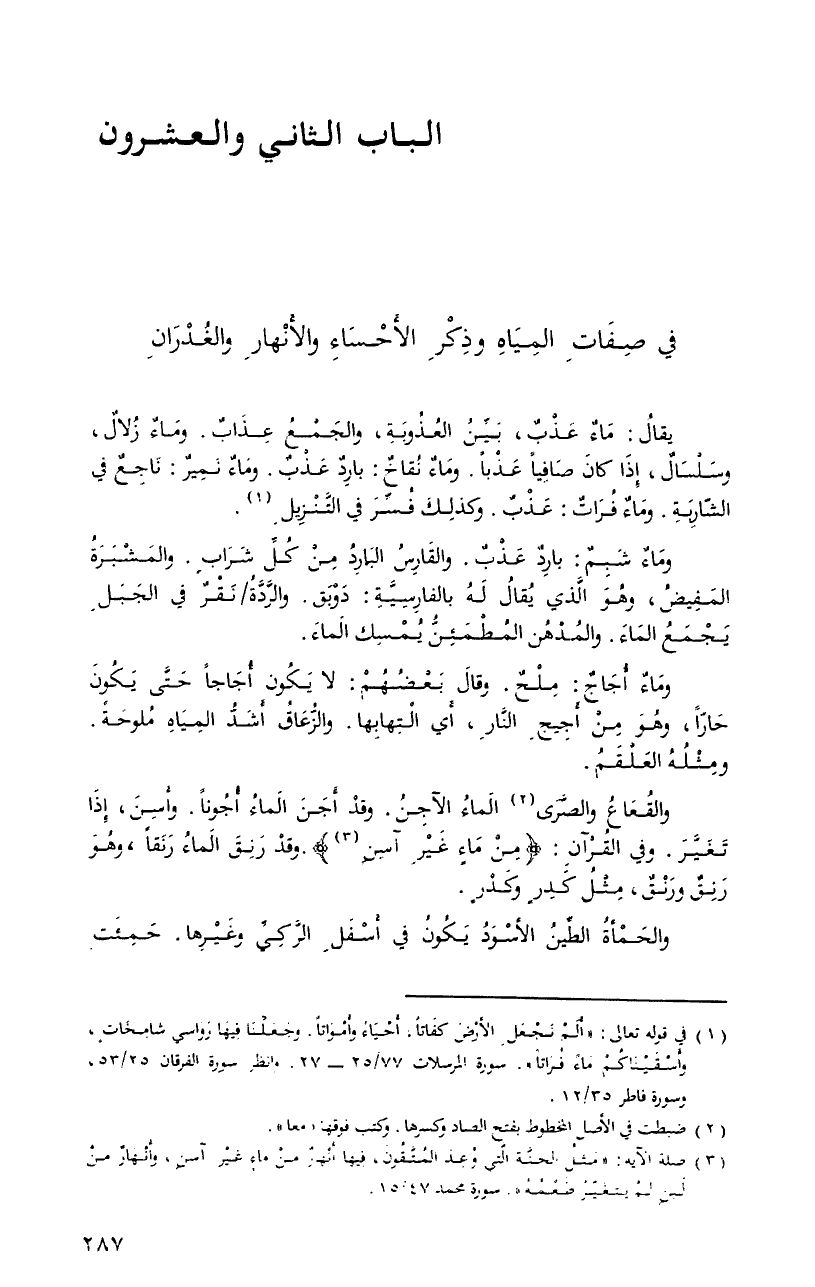 الباب الثاني والعشرون
في صِفَاتِ المِيَاهِ وَذِكْرِ الأَحْسَاءِ والأَنْهارِ والغُدْرَانِ
يقالُ: مَاءٌ عَذْبٌ، بَيِّنُ العُذُوبَةِ، والجَمْعُ عِذَابٌ. ومَاءٌ زُلالٌ،
وسَلْسَالٌ، إِذَا كانَ صَافِياً عَذْباً. ومَاءٌ نُقاخٌ: باردٌ عَذْبٌ. ومَاءٌ نَمِيرٌ: نَاجِعٌ في
الشّارِبَةِ. ومَاءٌ فُرَاتٌ: عَذْبٌ. وكذلِكَ فُسِّرَ في التَّنْزِيلِ(١).
ومَاءٌ شَبِمٌ: باردٌ عَذْبٌ. والقَارِسُ البَارِدُ مِنْ كُلِّ شَرَابٍ. والمَشْبَرَةُ
المَفِيضُ، وهُوَ الَّذي يُقالُ لَهُ بالفارِسِيَّةِ: دَوْبَق. والرَّدَّةُ/نَقْرٌ في الجَبَلِ
يَجْمَعُ المَاءَ. والمُدْهُن المُطْمَئِنُّ يُمْسِك الماءَ.
ومَاءٌ أُجَاجٌ: مِلْحٌ. وقالَ بَعْضُهُمْ: لا يَكُون أُجَاجاً حَتَّى يَكُونَ
حَارّاً، وهُوَ مِنْ أَجِيجِ النَّارِ، أي الْتِهابِها. والزُّعَاقُ أَشَدُّ المِيَاهِ مُلوحَةً.
ومِثْلُهُ العَلْقَمُ.
والقُعَاعُ والصَّرَى(٢) الماءُ الآجِنُ. وقدْ أَجَنَ الماءُ أُجُوناً. وأَسِنَ، إِذَا
تَغَيَّرَ. وفي القُرْآنِ: ﴿مِنْ مَاءٍ غَيْرِ آسِنٍ(٣)﴾. وقدْ رَنِقَ الماءُ رَنَقاً، وهُوَ
رَنِقٌ ورَنْقٌ، مِثْلُ كَدِرٍ وكَدْرٍ.
والحَمْأَةُ الطِّينُ الأَسْوَدُ يَكُونُ في أَسْفَلِ الرَّكِيِّ وغَيْرِها. حَمِئَت
(١) في قوله تعالى: «أَلَمْ نَجْعَلِ الأَرْضَ كِفَاتاً، أَحْيَاءً وأَمْوَاتاً. وجَعَلْنَا فِيهَا رَوَاسِي شَامِخَاتٍ،
وأَسْقَيْنَاكُمْ مَاءً فُرَاتاً». سورة المرسلات ٢٥/٧٧ ـ ٢٧. وانظر سورة الفرقان ٥٣/٢٥،
وسورة فاطر ١٢/٣٥.
(٢) ضبطت في الأصل المخطوط بفتح الصاد وكسرها. وكتب فوقها: «معا».
(٣) صلة الآية: «مَثَلُ الجَنَّةِ الَّتي وُعِدَ المُتَّقُونَ، فِيهَا أَنْهَارٌ مِنْ مَاءٍ غَيْرِ آسِنٍ، وأَنْهَارٌ مِنْ
لَبَنٍ لَمْ يَتَغَيَّرْ طَعْمُهُ». سورة محمد ١٥/٤٧.
٢٨٧